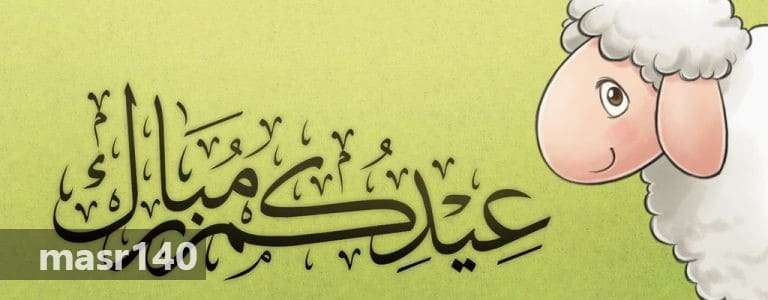 عِيْدِكُم مُبارك
masr140